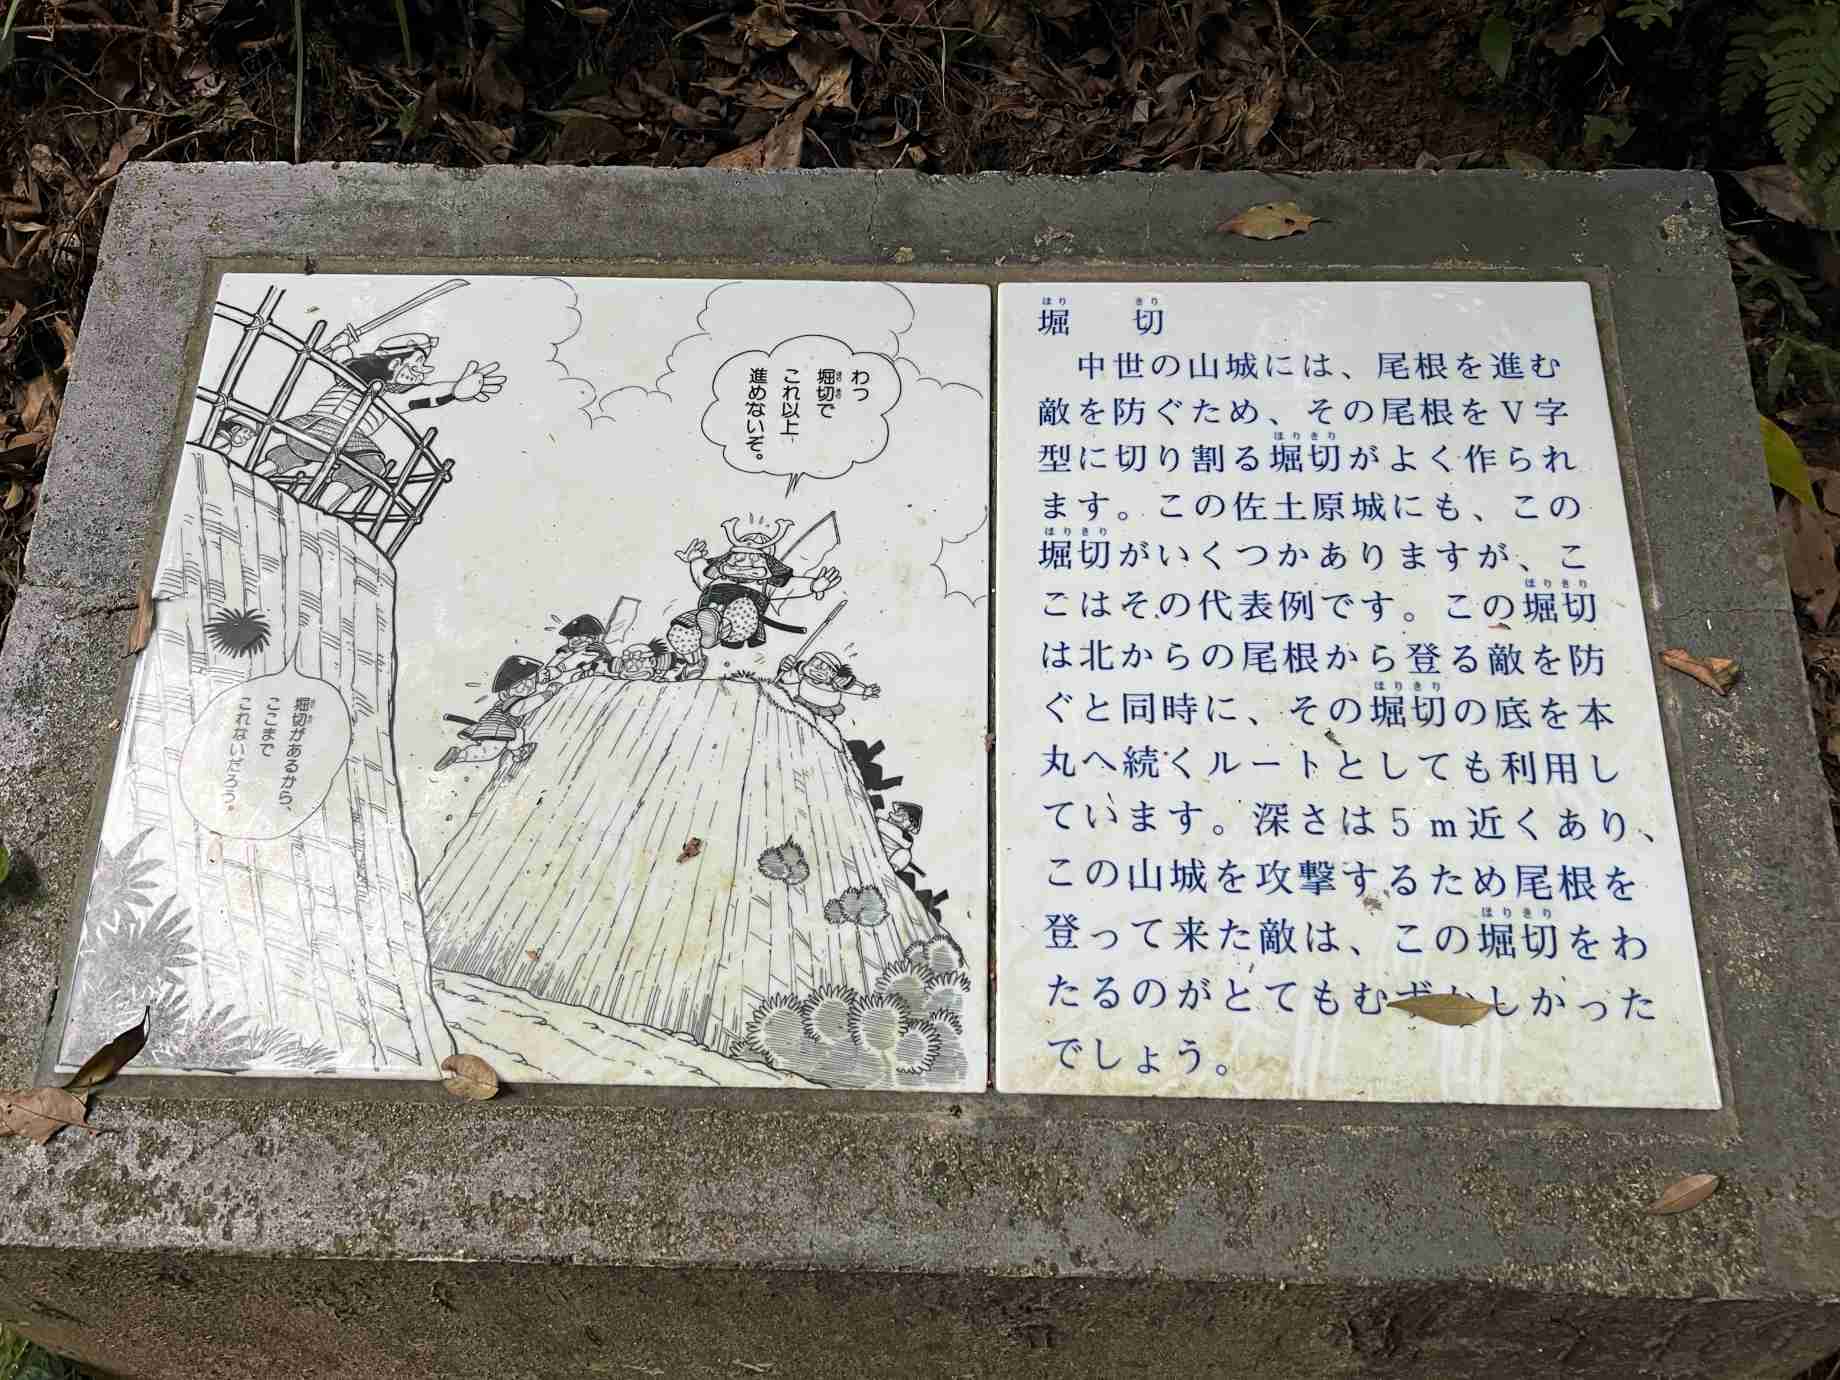 わっ
堀切で
これ以上
進めないぞ。
堀切があるから、
ここまで
これないだろう。
堀切
中世の山城には、尾根を進む
敵を防ぐため、その尾根をV字
型に切り割る堀切がよく作られ
ます。この佐土原城にも、この
堀切がいくつかありますが、こ
こはその代表例です。この堀切
は北からの尾根から登る敵を防
ぐと同時に、その堀切の底を本
丸へ続くルートとしても利用し
ています。深さは5m近くあり、
この山城を攻撃するため尾根を
登って来た敵は、この堀切をわ
たるのがとてもむずかしかった
でしょう。